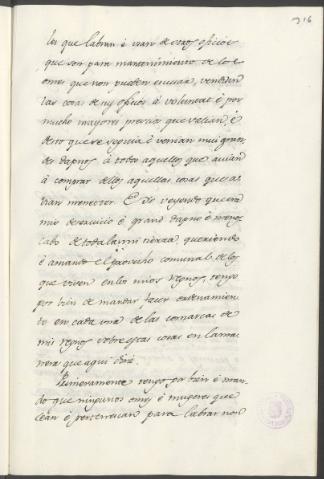 316
los que labran é usan de otros oficios
que son para mantenimiento de los
omes que non pueden escusar, vendian
las cosas de sus oficios à voluntad é por
muchos mayores precios que valian, é
desto que se seguia é venian mui gran-
des dapnos à todos aquellos que avian
à comprar dellos aquellas cosas que a-
vian menester. E Yo veyendo que era
mio deservicio é grand dapno é menos
cabo de toda la mi tierra, queriendo
é amando el provecho comunal de los
que viven en los mios regnos, tengo
por bien de mandar facer ordenamien-
to en cada una de las comarcas de
mis regnos sobre estas cosas en la ma-
nera que aqui dirá.
Primeramente tengo por bien é man-
do que ningunos omes é mugeres que
sean é pertenezcan para labrar non